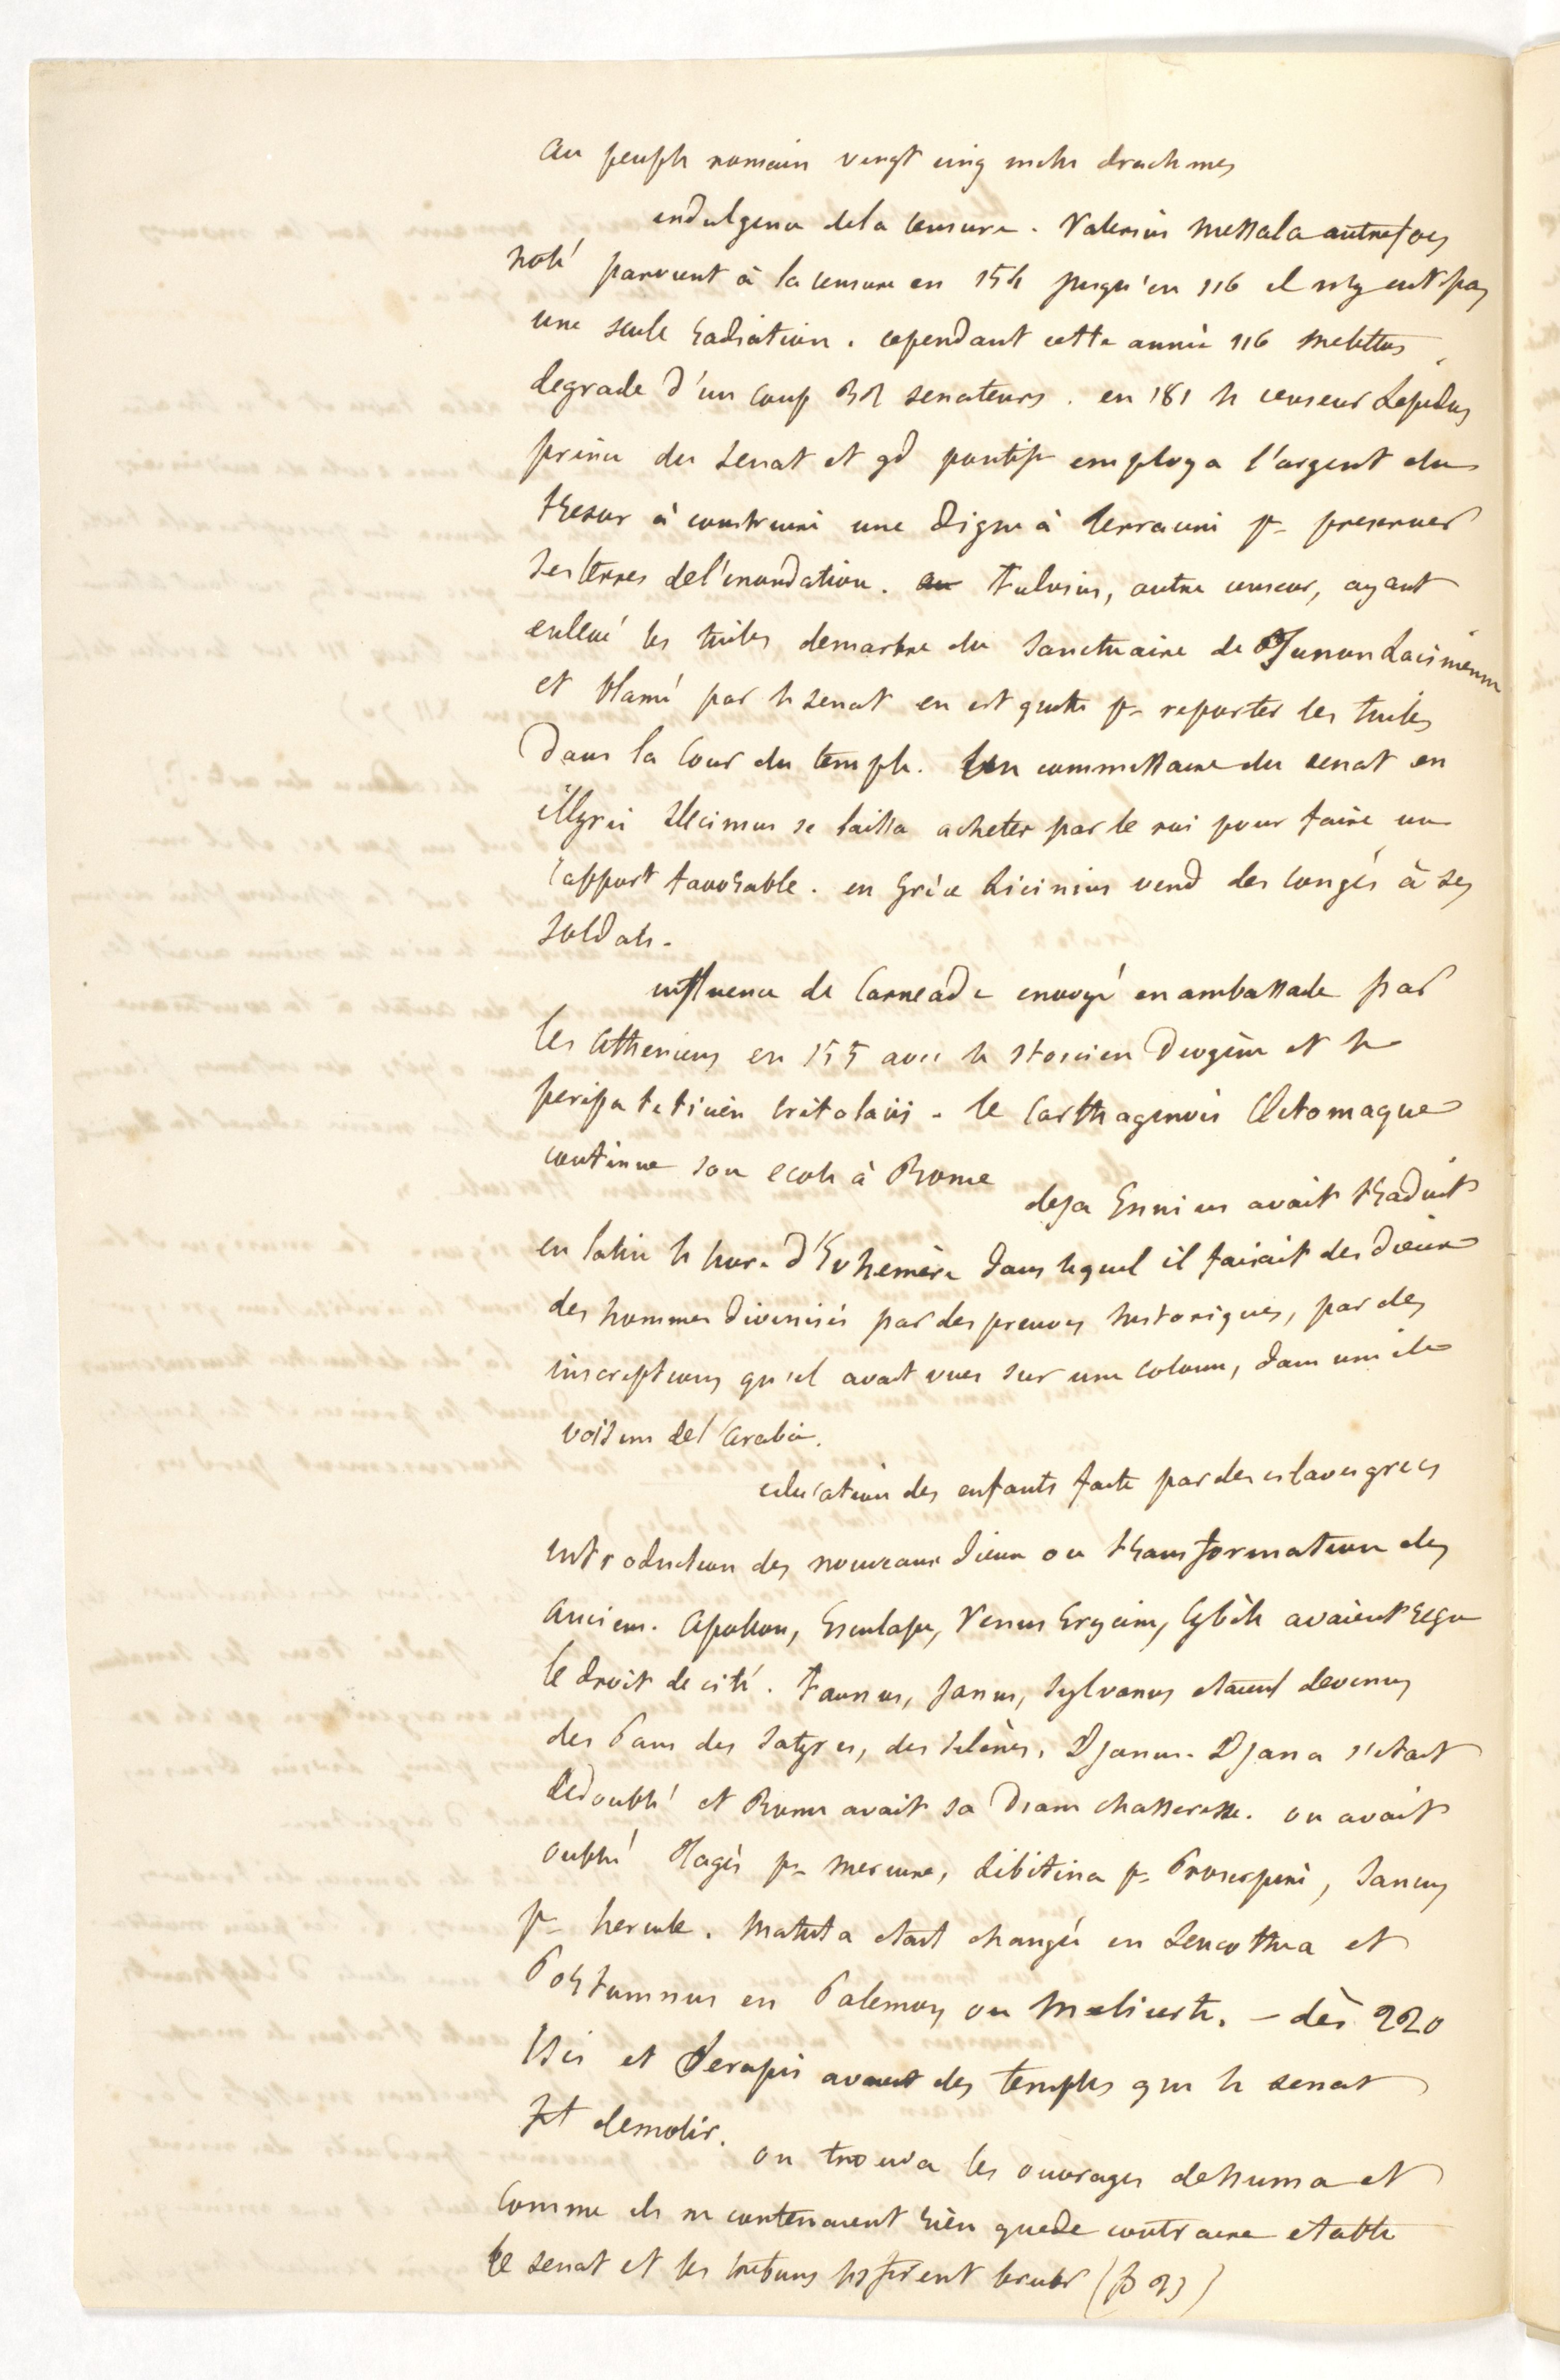 au peuple romain vingt cinq mille drachmes
indulgence de la censure. Valerius Messala autrefois
noté parvient à la censure en 154 jusqu'en 116 il n'y eut pas
une seule radiation. cependant cette année 116 Metellus
degrade d'un coup 32 senateurs. en 181 le censeur Lepidus
prince du senat et gd pontife employa l'argent du
tresor à construire une digue à Terracine pr preserver
ses terres de l'inondation. Fulvius, autre censeur, ayant
enlevé les tuiles de marbre du sanctuaire de Junon Lacinienne
et blamé par le senat en est quitte pr reporter les tuiles
dans la cour du temple. Un commissaire du senat en
illyrie Decimus se laissa acheter par le roi pour faire un
rapport favorable. en Grèce Licinius vend des congés à ses
soldats.
influence de Carneade envoyé en ambassade par
les Atheniens en 155 avec le stoicien Diogène et le
peripateticien Critolaüs. le Carthaginois Clitomaque
continue son ecole à Rome
deja Ennius avait traduit
en latin le livre d'Evhemère dans lequel il faisait des dieux
des hommes divinisés par des preuves historiques, par des
inscriptions qu'il avait vues sur une colonne, dans une ile
voisine de l'Arabie.
education des enfants faite par des esclaves grecs
introduction des nouveaux dieux ou transformation des
anciens. Apollon, Esculape, Venus Erycine, Cybèle avaient reçu
le droit de cité. Faunus, Janus, Sylvanus etaient devenus
des Pans des satyres, des silènes. Djanus-Djana s'etait
dedoublé et Rome avait sa Diane chasseresse. on avait
oublié Tagès pr Mercure, Libitina pr Proserpine, Sancus
pr hercule. Matuta etait changée en Leucothea et
Portumnus en Palemon ou Melicerte. — dès 220
Isis et Serapis avaient des temples que le senat
fit demolir.
on trouva les ouvrages de Numa et
comme ils ne contenaient rien que de contraire etabli
le senat et les tribuns les firent bruler (p 93)